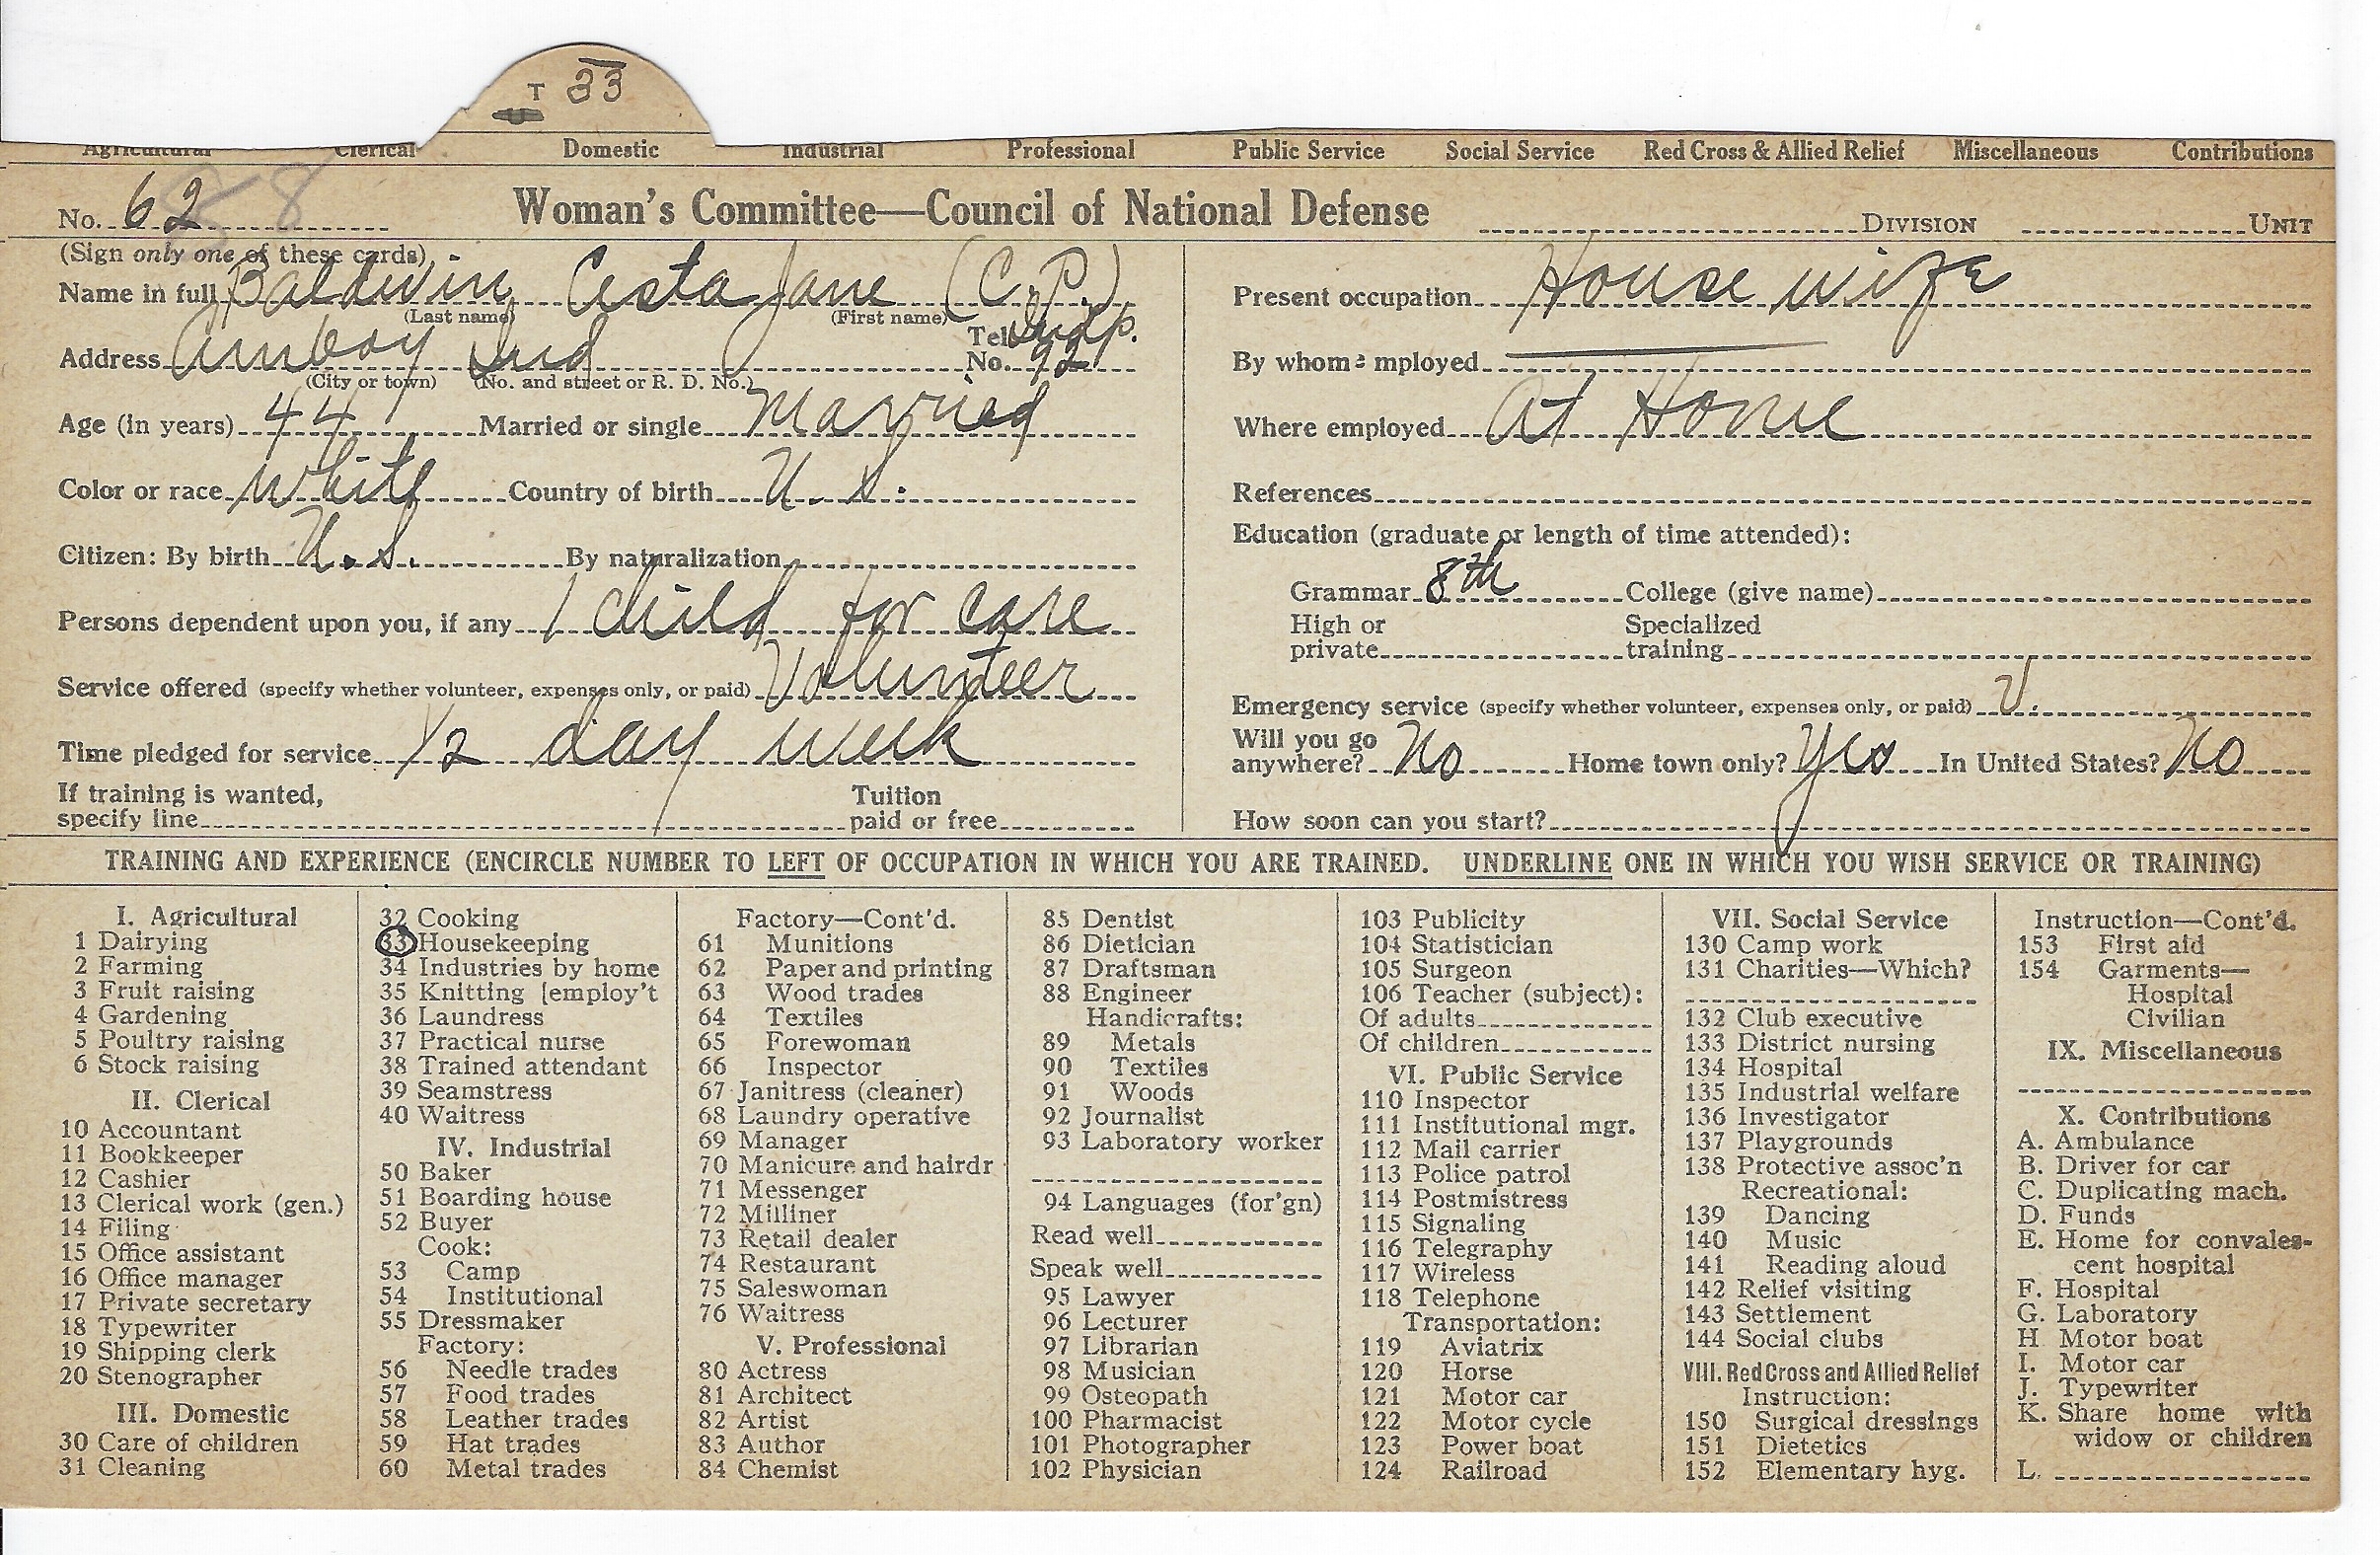 T 33
Agricultural Clerical Domestic Industrial Professional Public Service Social Service Red Cross & Allied Relief Miscellaneous Contributions
No. 62 Woman's Committee—Council of National Defense DIVISION UNIT
(Sign only one of these cards)
Name in full Baldwin Cesta Jane (C.P.)
(Last name) (First name)
Address Amboy Ind Tel. No. Indp. 92
(City or town) (No. and street or R. D. No.)
Age (in years) 44 Married or single Married
Color or race White Country of birth U. S.
Citizen: By birth U. S. By naturalization
Persons dependent upon you, if any 1 child for care
Service offered (specify whether volunteer, expenses only, or paid) Volunteer
Time pledged for service 1/2 day week
If training is wanted, specify line Tuition paid or free
Present occupation House wife
By whom employed
Where employed At Home
References
Education (graduate or length of time attended):
Grammar 8th College (give name)
High or private Specialized training
Emergency service (specify whether volunteer, expenses only, or paid) V.
Will you go anywhere? No Home town only? Yes In United States? No
How soon can you start?
TRAINING AND EXPERIENCE (ENCIRCLE NUMBER TO LEFT OF OCCUPATION IN WHICH YOU ARE TRAINED. UNDERLINE ONE IN WHICH YOU WISH SERVICE OR TRAINING)
I. Agricultural
1 Dairying
2 Farming
3 Fruit raising
4 Gardening
5 Poultry raising
6 Stock raising
II. Clerical
10 Accountant
11 Bookkeeper
12 Cashier
13 Clerical work (gen.)
14 Filing
15 Office assistant
16 Office manager
17 Private secretary
18 Typewriter
19 Shipping clerk
20 Stenographer
III. Domestic
30 Care of children
31 Cleaning
32 Cooking
33 Housekeeping
34 Industries by home
35 Knitting [employ't
36 Laundress
37 Practical nurse
38 Trained attendant
39 Seamstress
40 Waitress
IV. Industrial
50 Baker
51 Boarding house
52 Buyer
Cook:
53 Camp
54 Institutional
55 Dressmaker
Factory:
56 Needle trades
57 Food trades
58 Leather trades
59 Hat trades
60 Metal trades
Factory—Cont'd.
61 Munitions
62 Paper and printing
63 Wood trades
64 Textiles
65 Forewoman
66 Inspector
67 Janitress (cleaner)
68 Laundry operative
69 Manager
70 Manicure and hairdr
71 Messenger
72 Milliner
73 Retail dealer
74 Restaurant
75 Saleswoman
76 Waitress
V. Professional
80 Actress
81 Architect
82 Artist
83 Author
84 Chemist
85 Dentist
86 Dietician
87 Draftsman
88 Engineer
Handicrafts:
89 Metals
90 Textiles
91 Woods
92 Journalist
93 Laboratory worker
94 Languages (for'gn)
Read well
Speak well
95 Lawyer
96 Lecturer
97 Librarian
98 Musician
99 Osteopath
100 Pharmacist
101 Photographer
102 Physician
103 Publicity
104 Statistician
105 Surgeon
106 Teacher (subject):
Of adults
Of children
VI. Public Service
110 Inspector
111 Institutional mgr.
112 Mail carrier
113 Police patrol
114 Postmistress
115 Signaling
116 Telegraphy
117 Wireless
118 Telephone
Transportation:
119 Aviatrix
120 Horse
121 Motor car
122 Motor cycle
123 Power boat
124 Railroad
VII. Social Service
130 Camp work
131 Charities—Which?
132 Club executive
133 District nursing
134 Hospital
135 Industrial welfare
136 Investigator
137 Playgrounds
138 Protective assoc'n
Recreational:
139 Dancing
140 Music
141 Reading aloud
142 Relief visiting
143 Settlement
144 Social clubs
VIII. Red Cross and Allied Relief
Instruction:
150 Surgical dressings
151 Dietetics
152 Elementary hyg.
Instruction—Cont'd.
153 First aid
154 Garments—
Hospital
Civilian
IX. Miscellaneous
X. Contributions
A. Ambulance
B. Driver for car
C. Duplicating mach.
D. Funds
E. Home for convales-
cent hospital
F. Hospital
G. Laboratory
H Motor boat
I. Motor car
J. Typewriter
K. Share home with
widow or children
L.